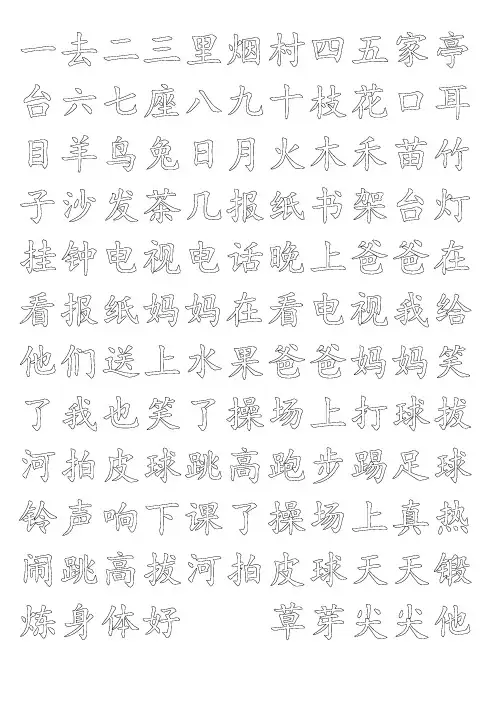 一去二三里烟村四五家亭
台六七座八九十枝花口耳
目羊鸟兔日月火木禾苗竹
子沙发茶几报纸书架台灯
挂钟电视电话晚上爸爸在
看报纸妈妈在看电视我给
他们送上水果爸爸妈妈笑
了我也笑了操场上打球拔
河拍皮球跳高跑步踢足球
铃声响下课了操场上真热
闹跳高拔河拍皮球天天锻
炼身体好 草芽尖尖他